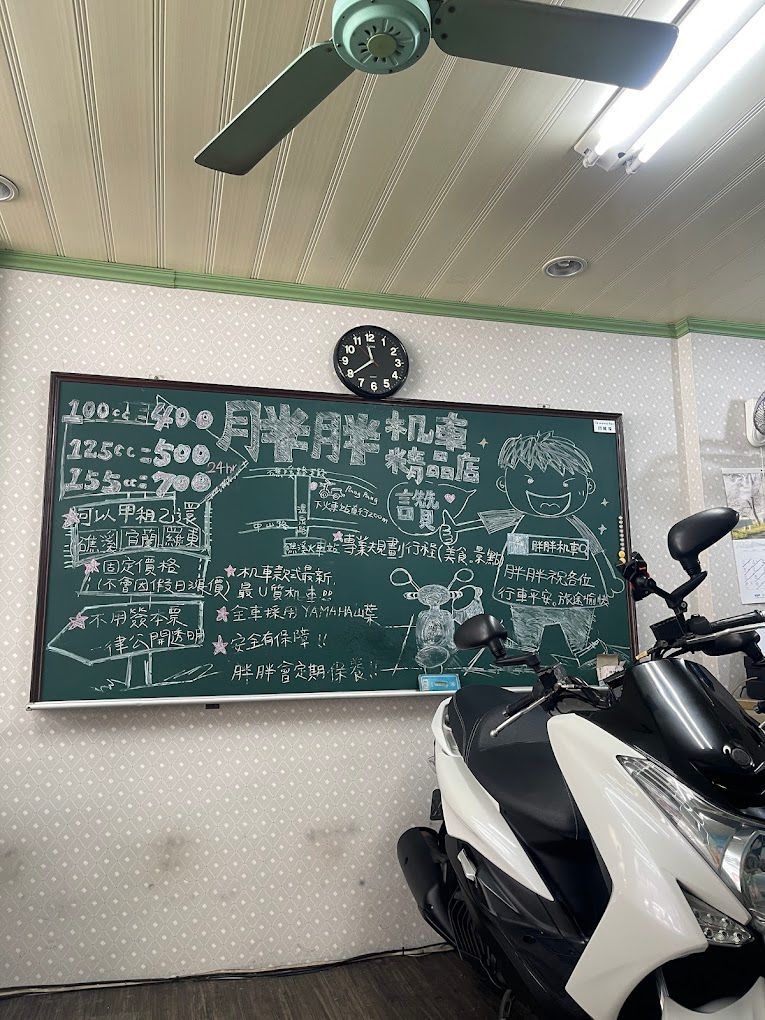 100cc=400
125cc=500
155cc=700
24hr
胖胖机車
精品店
Pang Pang
下火車站直行200m
中山路
礁溪火車站
讚
可以甲租乙還
礁溪 宜蘭 羅東
固定價格
(不會因假日漲價)
不用簽本票
律公開透明
專業規劃行程(美食。景點)
机車款式最新
最U質机車!!
全車採用YAMAHA山葉
安全有保障!!
胖胖會定期保養!!
胖胖机車
胖胖祝各位
行車平安。旅途愉快
12 1 2 3 4 5 6 7 8 9 10 11